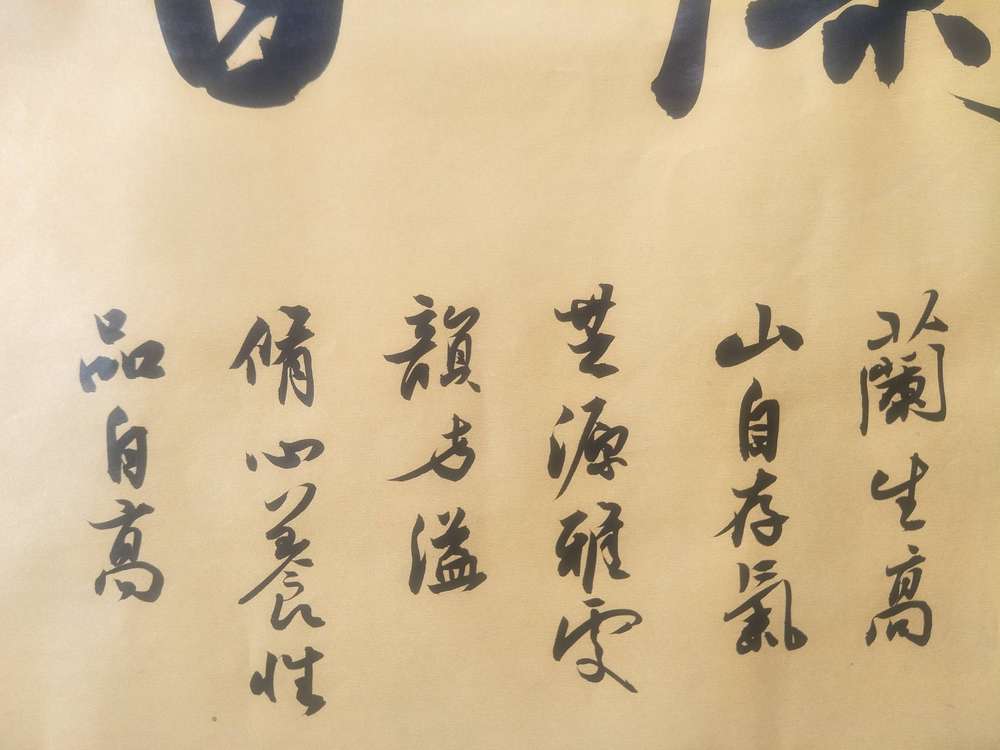 蘭生高
山自存氣
源雅
韻方溢
脩心養性
品自高